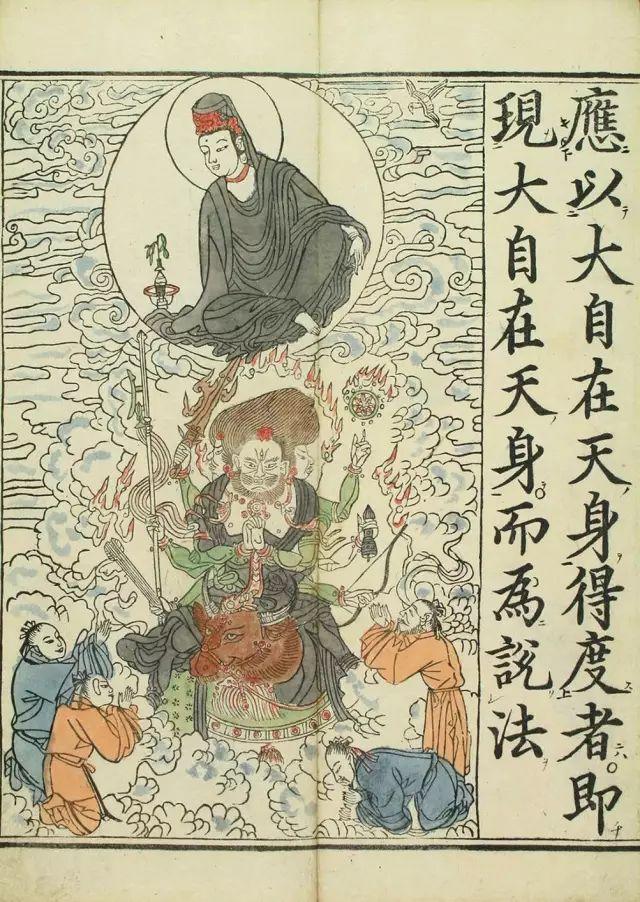 應以大自在天身得度者即
現大自在天身而爲說法